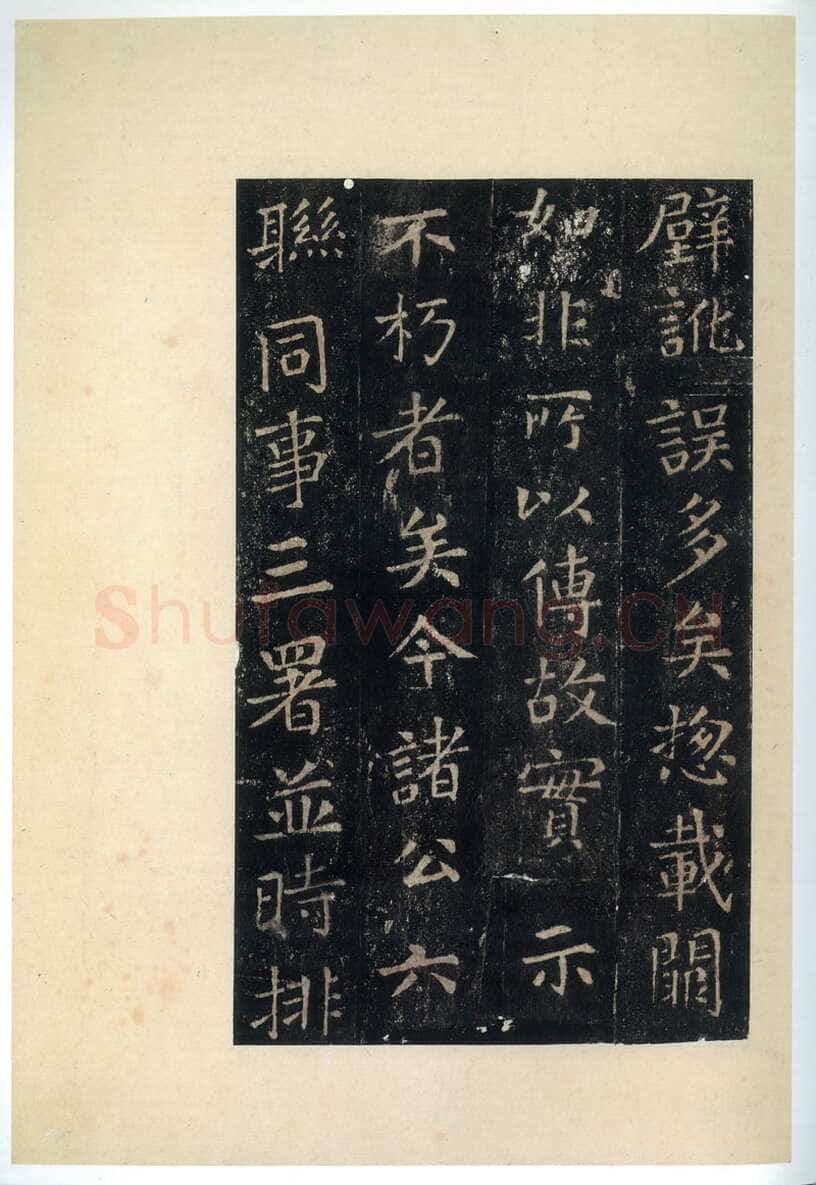 壁訛誤多矣惣載闕
如非所以傳故實示
不朽者矣今諸公六
聯同事三署並時排
Shufawang.CN